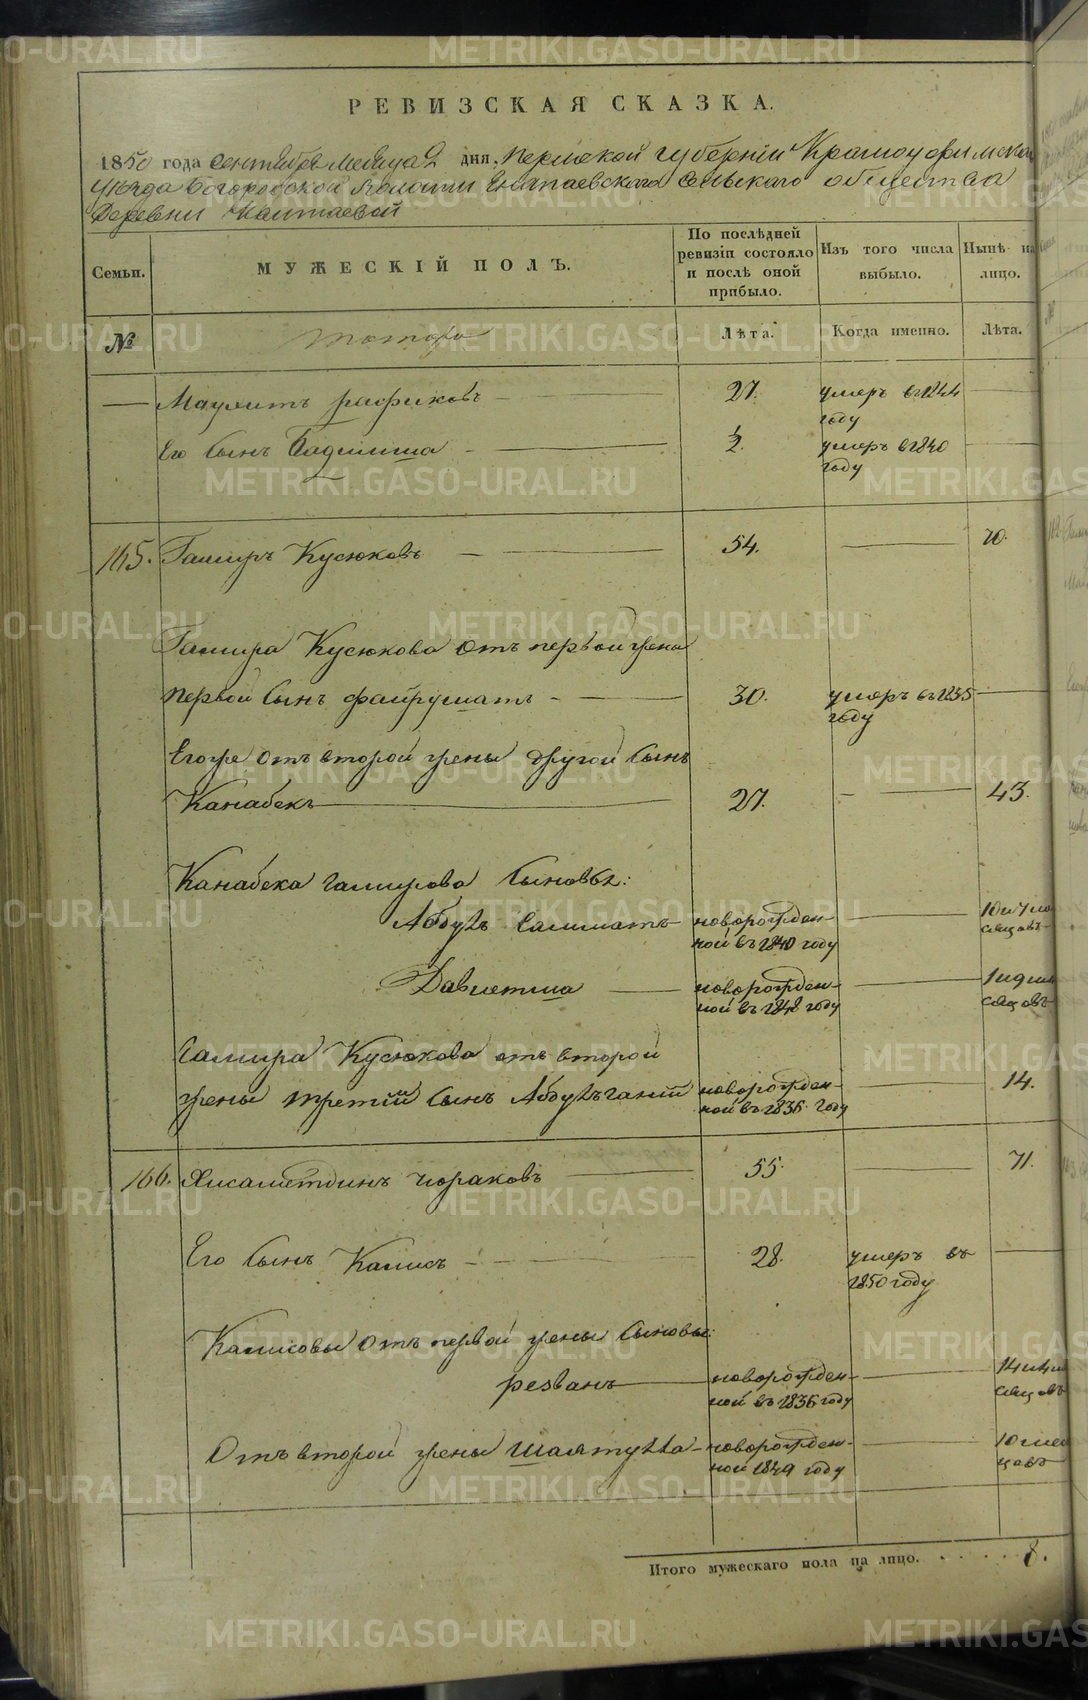 РЕВИЗСКАЯ СКАЗКА.
1850 года Сентября Месяца 2 дня. Пермской Губернии Красноуфимска
Уезда Богородской Волости Енапаевскаго Сельскаго общества
Деревни Каштаевой
Семьи.
МУЖЕСКІЙ ПОЛЪ.
По послѣдней ревизіи состояло и послѣ оной прибыло.
Изъ того числа выбыло.
Нынѣ на лицо.
№
Лѣта.
Когда именно.
Лѣта.
Маулитъ рафиковъ 27. умеръ въ 1844 году
Его Сынъ Бадшша ½. умеръ в 1840 году
165. Гамиръ Кусюковъ 54. 70.
Гамира Кусюкова Отъ первой жены
первой Сынъ файрушатъ 30. умеръ въ 1835 году
Егоже Отъ второй жены другой Сынъ
Канабекъ 27. 43.
Канабека Гамирова Сыновья:
Абдулъ Салиматъ новорожден-
ной въ 1840 году 10 и 7 ме
сяцовъ
Давлетша новорожден-
ной въ 1848 году 1 и 9 ме
сяцовъ
Гамира Кусюкова отъ второй
жены третій Сынъ Абдулъганій новорожден-
ной въ 1836 году 14.
166. Хисаметдинъ Чораковъ 55. 71.
Его Сынъ Камисъ 28. умеръ въ
1850 году
Камисовы Отъ первой жены Сыновья:
резванъ новорожден-
ной въ 1836 году 14 и 4 м
сяцовъ
Отъ второй жены Шаятулла новорожден-
ной 1849 году 10 меся
цовъ
Итого мужескаго пола на лицо. 8.
METRIKI.GASO-URAL.RU